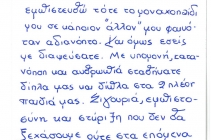 εμπιστευθώ τότε το μοναχοπαίδι
μου σε κάποιον "άλλον" μου φαινό-
ταν αδιανόητο. Και όμως εσείς
με διαψεύσατε. Με υπομονή, κατα-
νόηση και ανθρωπιά σταθήκατε
δίπλα μας και δίπλα στα πλέον
παιδιά μας. Σιγουριά, εμπιστο-
σύνη και στήριξη που δεν θα
ξεχάσουμε ούτε στα επόμενα